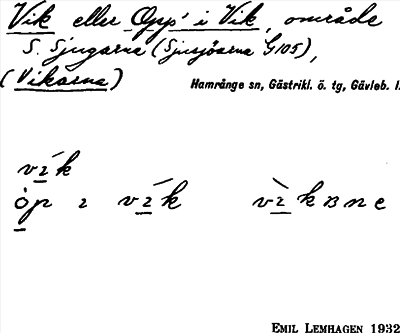 Vik eller Opp' i Vik, område
S. Sjugarna (Sjusjöarna G105),
(Vikarna)
Hamrånge sn, Gästrikl. ö. tg, Gävleb. l.
vík
òp ı vík vìkɐne
EMIL LEMHAGEN 1932